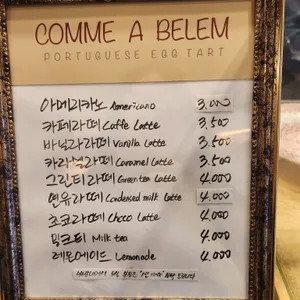 COMME A BELEM
PORTUGUESE EGG TART
아메리카노 Americano 3.000
카페라떼 Caffe Latte 3.500
바닐라라떼 Vanilla Latte 3.500
카라멜라떼 Caramel Latte 3.500
그린티라떼 Green tea Latte 4.000
연유라떼 Condensed milk Latte 4.000
초코라떼 Choco Latte 4.000
밀크티 Milk tea 4.000
레몬에이드 Lemonade 4.000